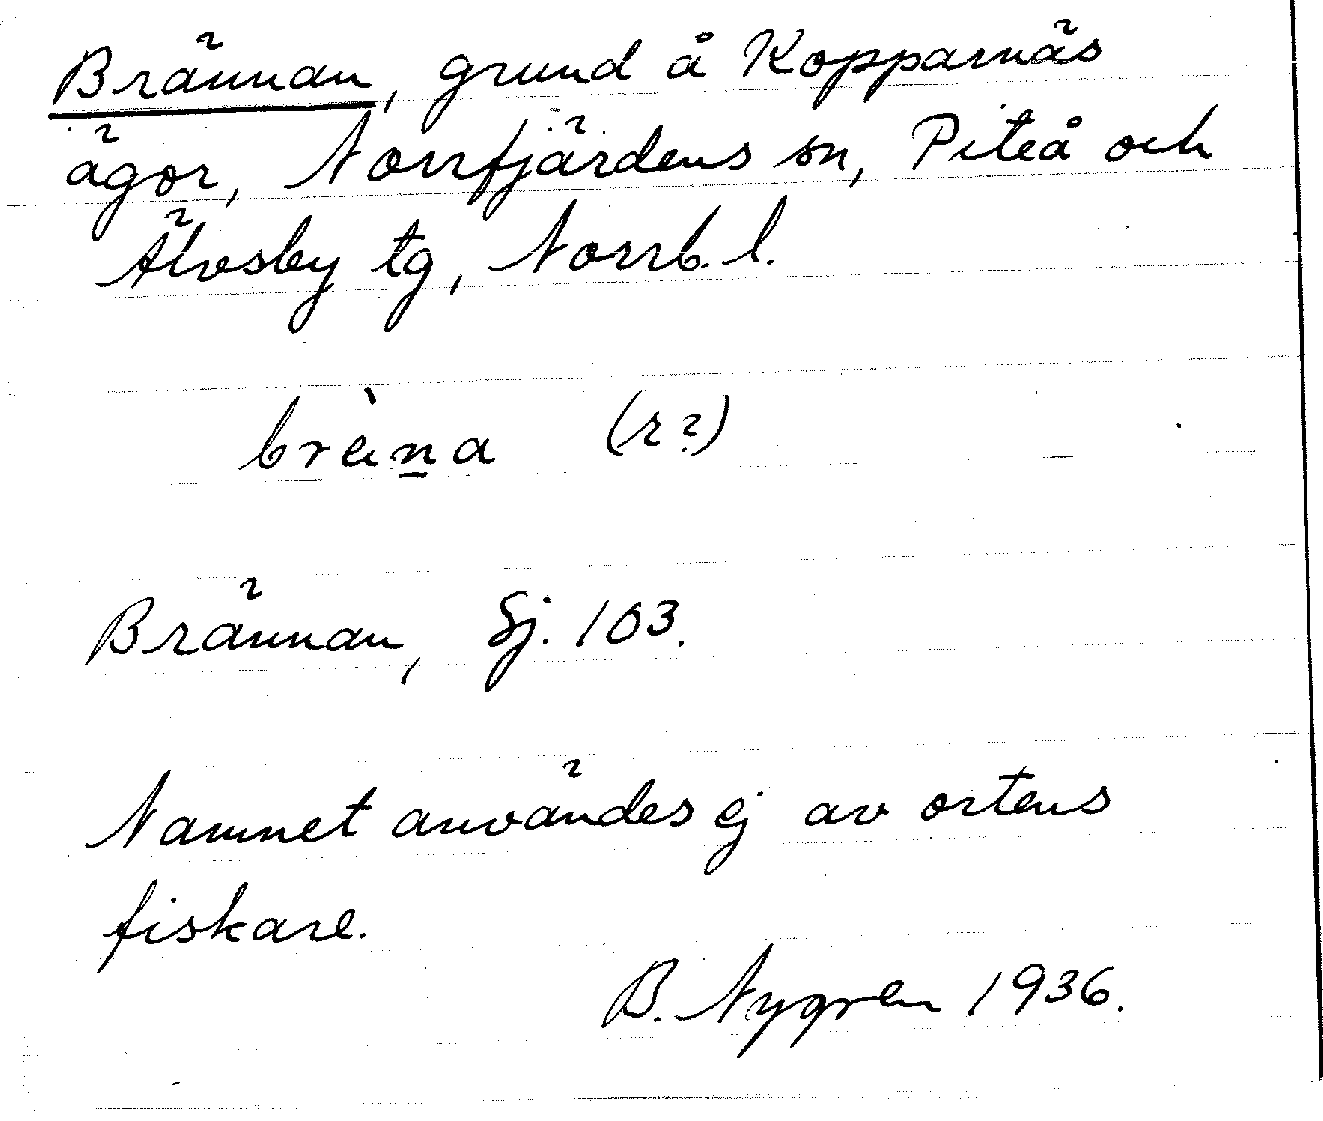 Brännan, grund å Kopparnäs
ägor, Norrfjärdens sn, Piteå och
Älvsby tg, Norrb. l.
(r?)
Brännan, Sj. 103.
Namnet användes ej av ortens
fiskare.
B. Nygren 1936.